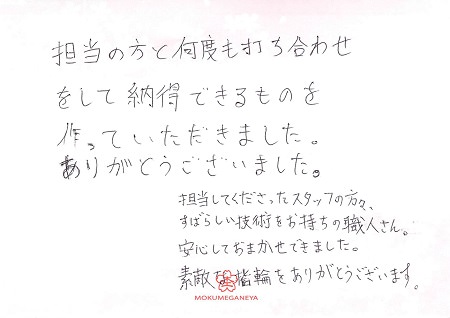 担当の方と何度も打ち合わせ
をして納得できるものを
作っていただきました。
ありがとうございました。
担当してくださったスタッフの方々、
すばらしい技術をお持ちの職人さん。
安心しておまかせできました。
素敵な指輪をありがとうございます。
MOKUMEGANEYA